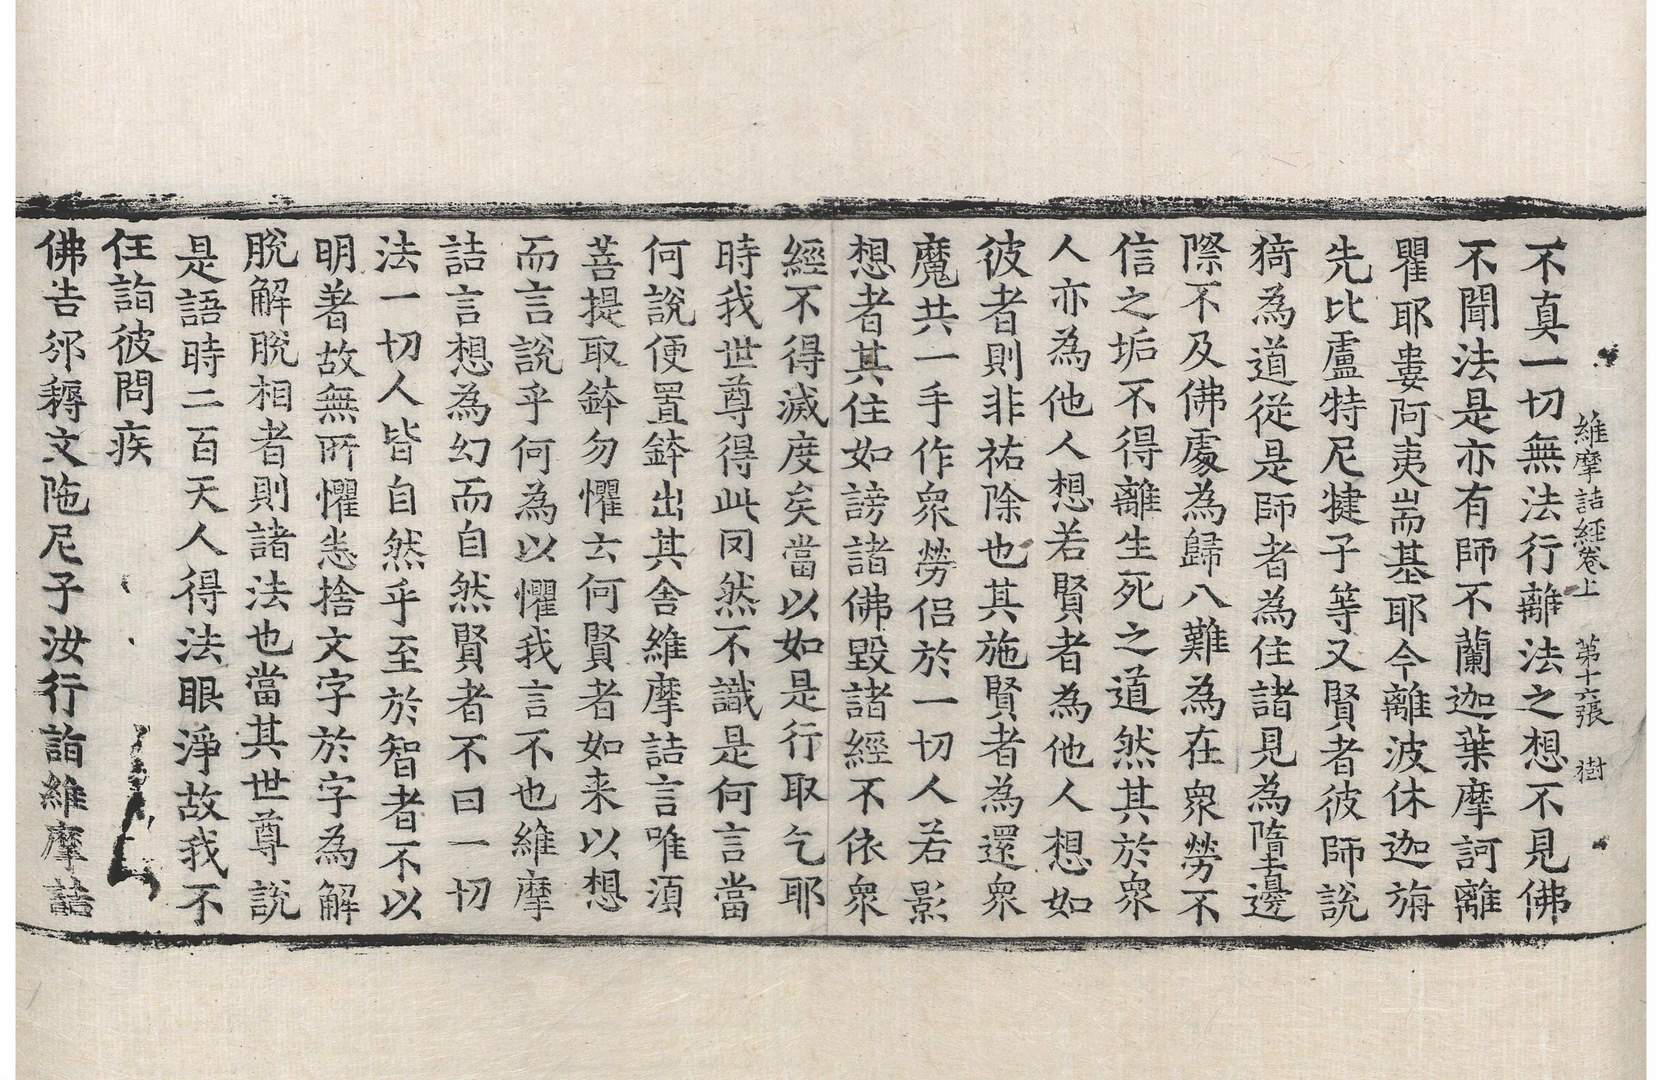 維摩詰經卷上 第十六張 樹
不真一切無法行離法之想不見佛
不聞法是亦有師不蘭迦葉摩訶離
瞿耶婁阿夷耑基耶今離波休迦旃
先比盧特尼揵子等又賢者彼師說
猗為道從是師者為住諸見為墮邊
際不及佛處為歸八難為在衆勞不
信之垢不得離生死之道然其於衆
人亦為他人想若賢者為他人想如
彼者則非祐除也其施賢者為還衆
魔共一手作衆勞侶於一切人若影
想者其住如謗諸佛毀諸經不依衆
經不得滅度矣當以如是行取乞耶
時我世尊得此罔然不識是何言當
何說便置鉢出其舍維摩詰言唯湏
菩提取鉢勿懼云何賢者如来以想
而言說乎何為以懼我言不也維摩
詰言想為幻而自然賢者不曰一切
法一切人皆自然乎至於智者不以
明著故無所懼悉捨文字於字為解
脫解脫相者則諸法也當其世尊說
是語時二百天人得法眼淨故我不
任詣彼問疾
佛告邠耨文陁尼子汝行詣維摩詰